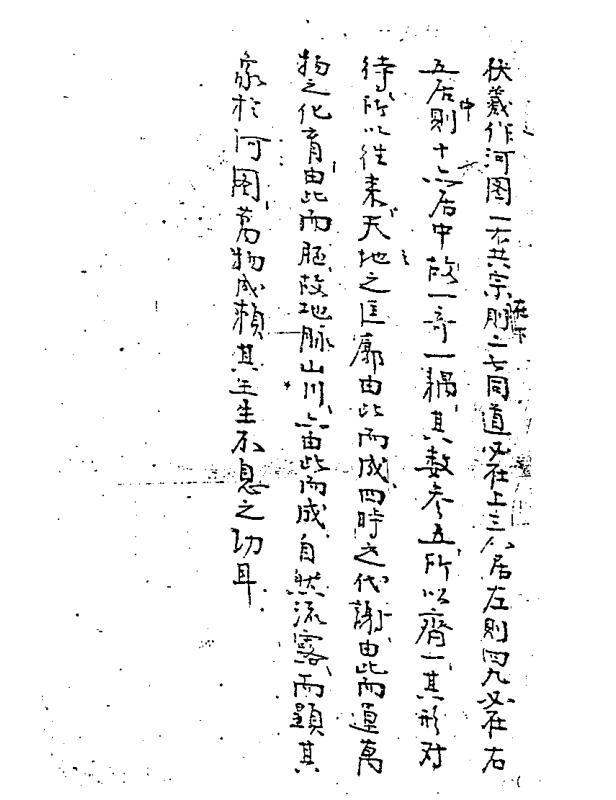 伏羲作河图一六共宗在下則二七同道必在上三八居左則四九必在右
五居中則十亦居中故一奇一耦其数参五所以齊一其形对
待所以往来天地之匡廓由此而成四時之代謝由此而運萬
物之化育由此而胚故地脉山川亦由此而成自然流露而顕其
象於河图萬物咸賴其生生不息之功耳